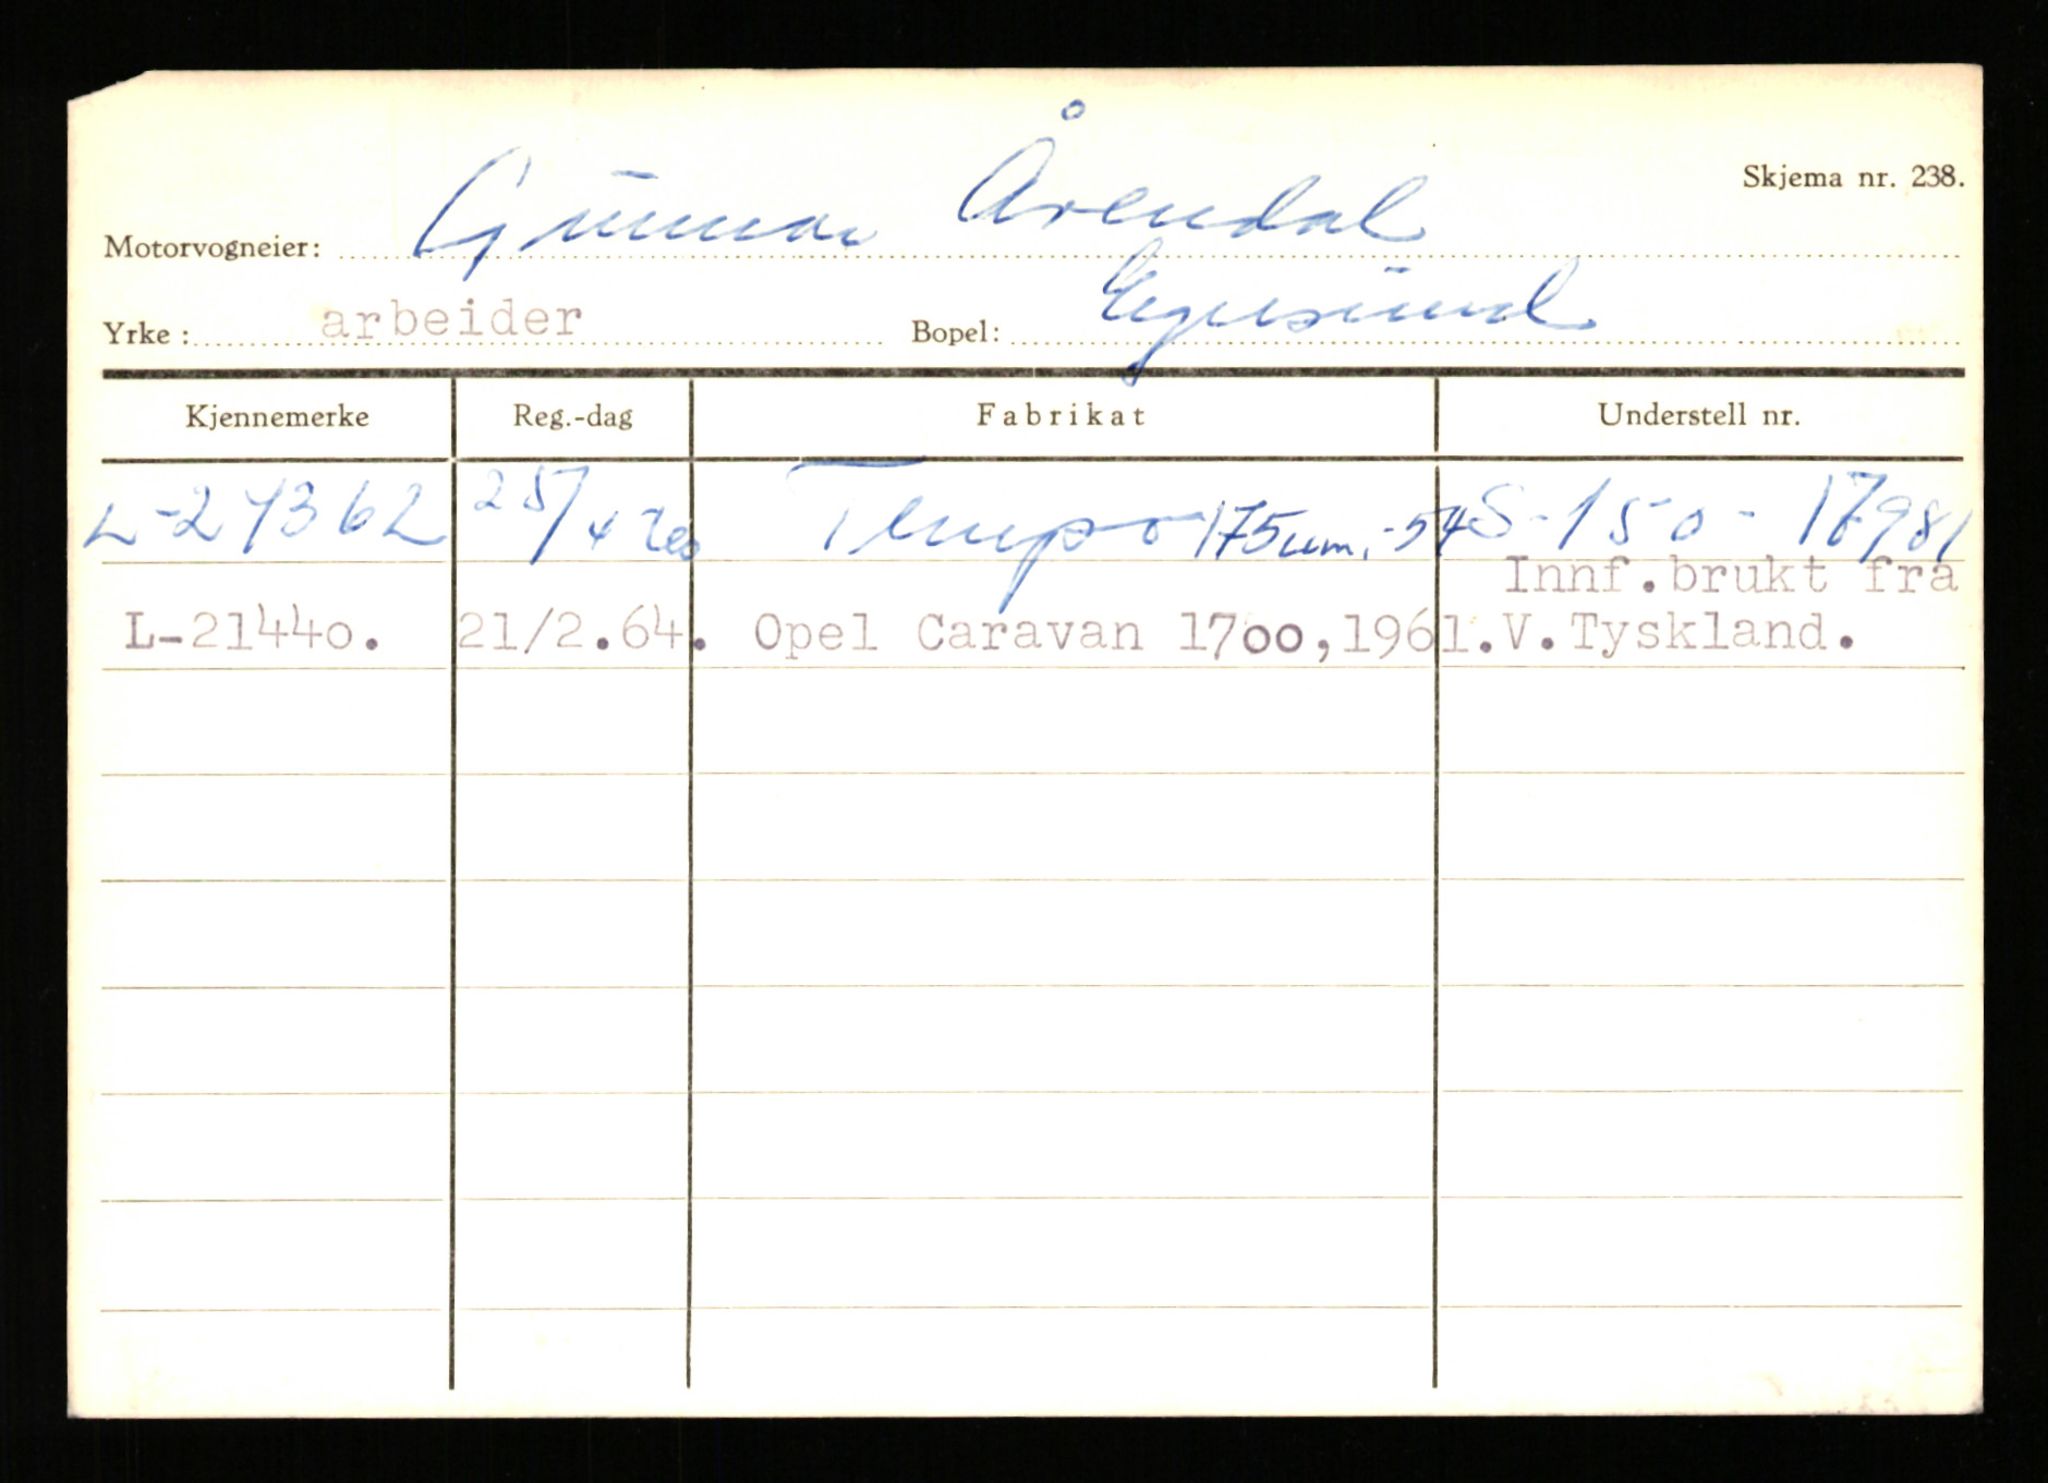 Skjema nr. 238.
Motorvogneier: Gunnar Årendal
Yrke: arbeider Bopel: Egersund
Kjennemerke Reg.-dag Fabrikat Understell nr.
L-27362 25/4 Tempo 175 -54 S-150-
Innf.brukt fra
L-21440. 21/2.64. Opel Caravan 1700,1961. V.Tyskland.